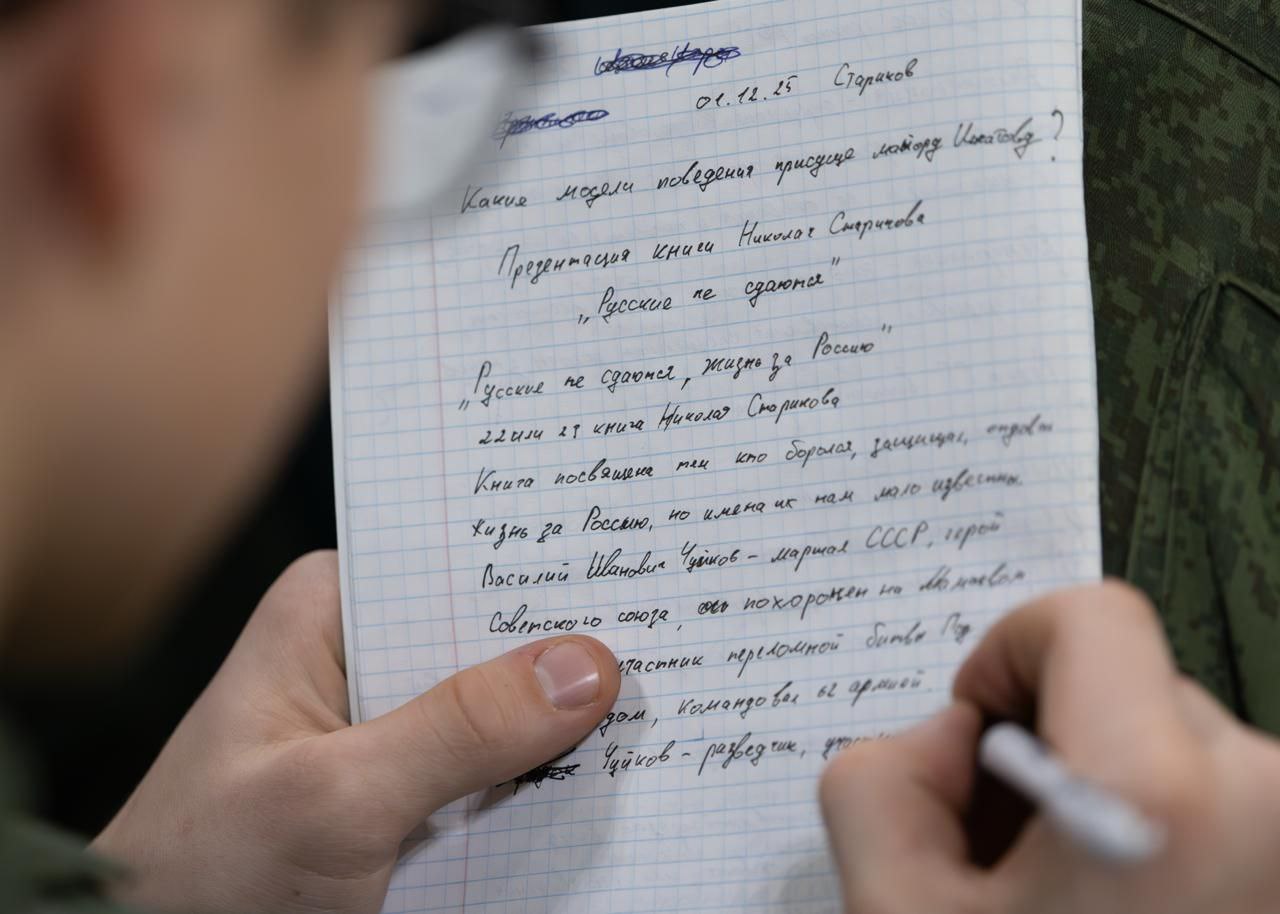 01.12.25 Стариков
Какие модели поведения присуще майору ?
Презентация книги Николая Старикова
„Русские не сдаются"
„Русские не сдаются, жизнь за Россию"
22 или 23 книга Николая Старикова
Книга посвящена тем кто боролся, защищал,
жизнь за Россию, но имена их нам мало известны.
Василий Иванович Чуйков - маршал СССР, герой
Советского союза, похоронен на
участник переломной битвы Под
дом, командовал 62 армией.
Чуйков - разведчик,